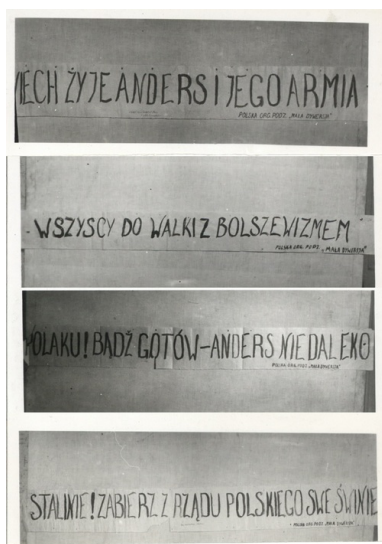 NIECH ŻYJE ANDERS I JEGO ARMIA
POLSKA ORG. PODZ. „MAŁA DYWERSJA”
WSZYSCY DO WALKI Z BOLSZEWIZMEM
POLSKA ORG. PODZ. „MAŁA DYWERSJA”
POLAKU! BĄDŹ GOTÓW – ANDERS NIEDALEKO
POLSKA ORG. PODZ. „MAŁA DYWERSJA”
STALINIE! ZABIERZ Z RZĄDU POLSKIEGO SWE ŚWINIE
POLSKA ORG. PODZ. „MAŁA DYWERSJA”